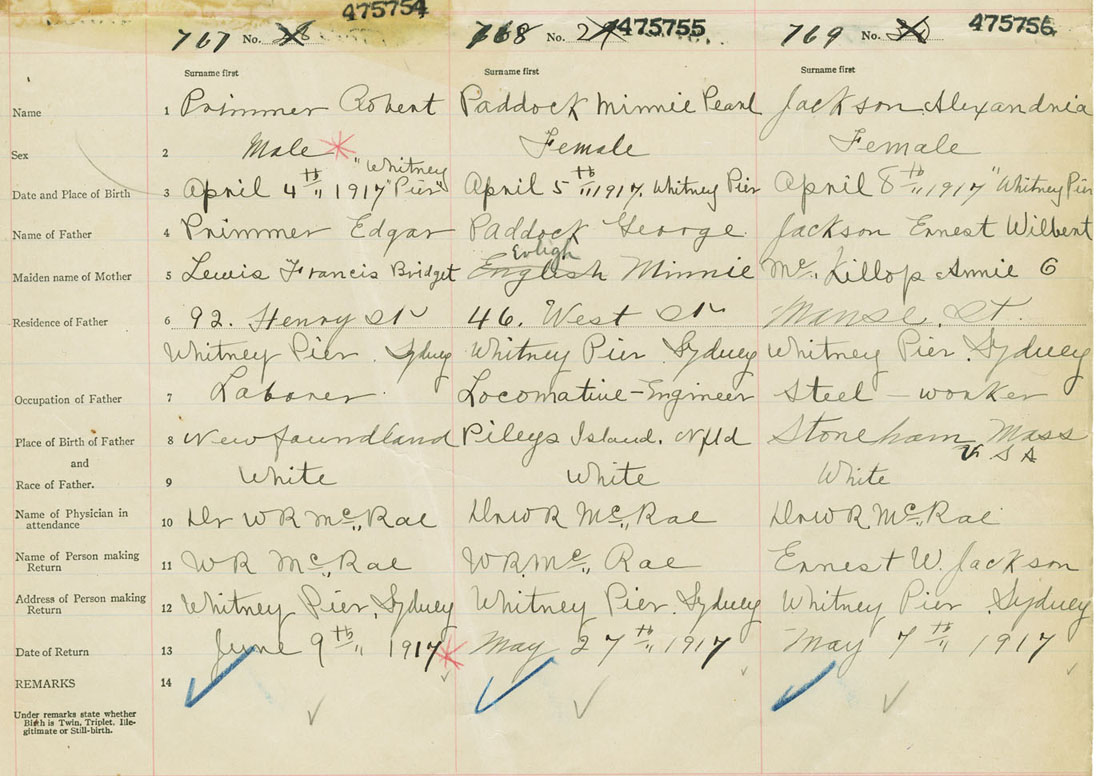 475754 475755 475756
767 No. 28 768 No. 29 769 No. 30
Surname first Surname first Surname first
Name 1 Primmer Robert Paddock Minnie Pearl Jackson Alexandria
Sex 2 Male Female Female
"Whitney
Date and Place of Birth 3 April 4th 1917 Pier" April 5th 1917. Whitney Pier April 8th 1917 "Whitney Pier
Name of Father 4 Primmer Edgar Paddock George Jackson Ernest Wilbert
Maiden name of Mother 5 Lewis Francis Bridget English Minnie Mc Killop Annie G
Residence of Father 6 92. Henry St 46. West St Manse. St.
Whitney Pier. Sydney Whitney Pier. Sydney Whitney Pier. Sydney
Occupation of Father 7 Laborer Locomative-Engineer Steel - worker
Place of Birth of Father 8 Newfoundland Pileys Island. Nfld Stoneham, Mass
and U S A
Race of Father. 9 White White White
Name of Physician in
attendance 10 Dr WR McRae Dr WR McRae Dr WR McRae
Name of Person making
Return 11 WR McRae WR. Mc Rae Ernest W. Jackson
Address of Person making
Return 12 Whitney Pier, Sydney Whitney Pier. Sydney Whitney Pier Sydney
Date of Return 13 June 9th 1917 May 27th 1917 May 7th 1917
REMARKS 14
Under remarks state whether
Birth is Twin, Triplet, Ille-
gitimate or Still-birth.